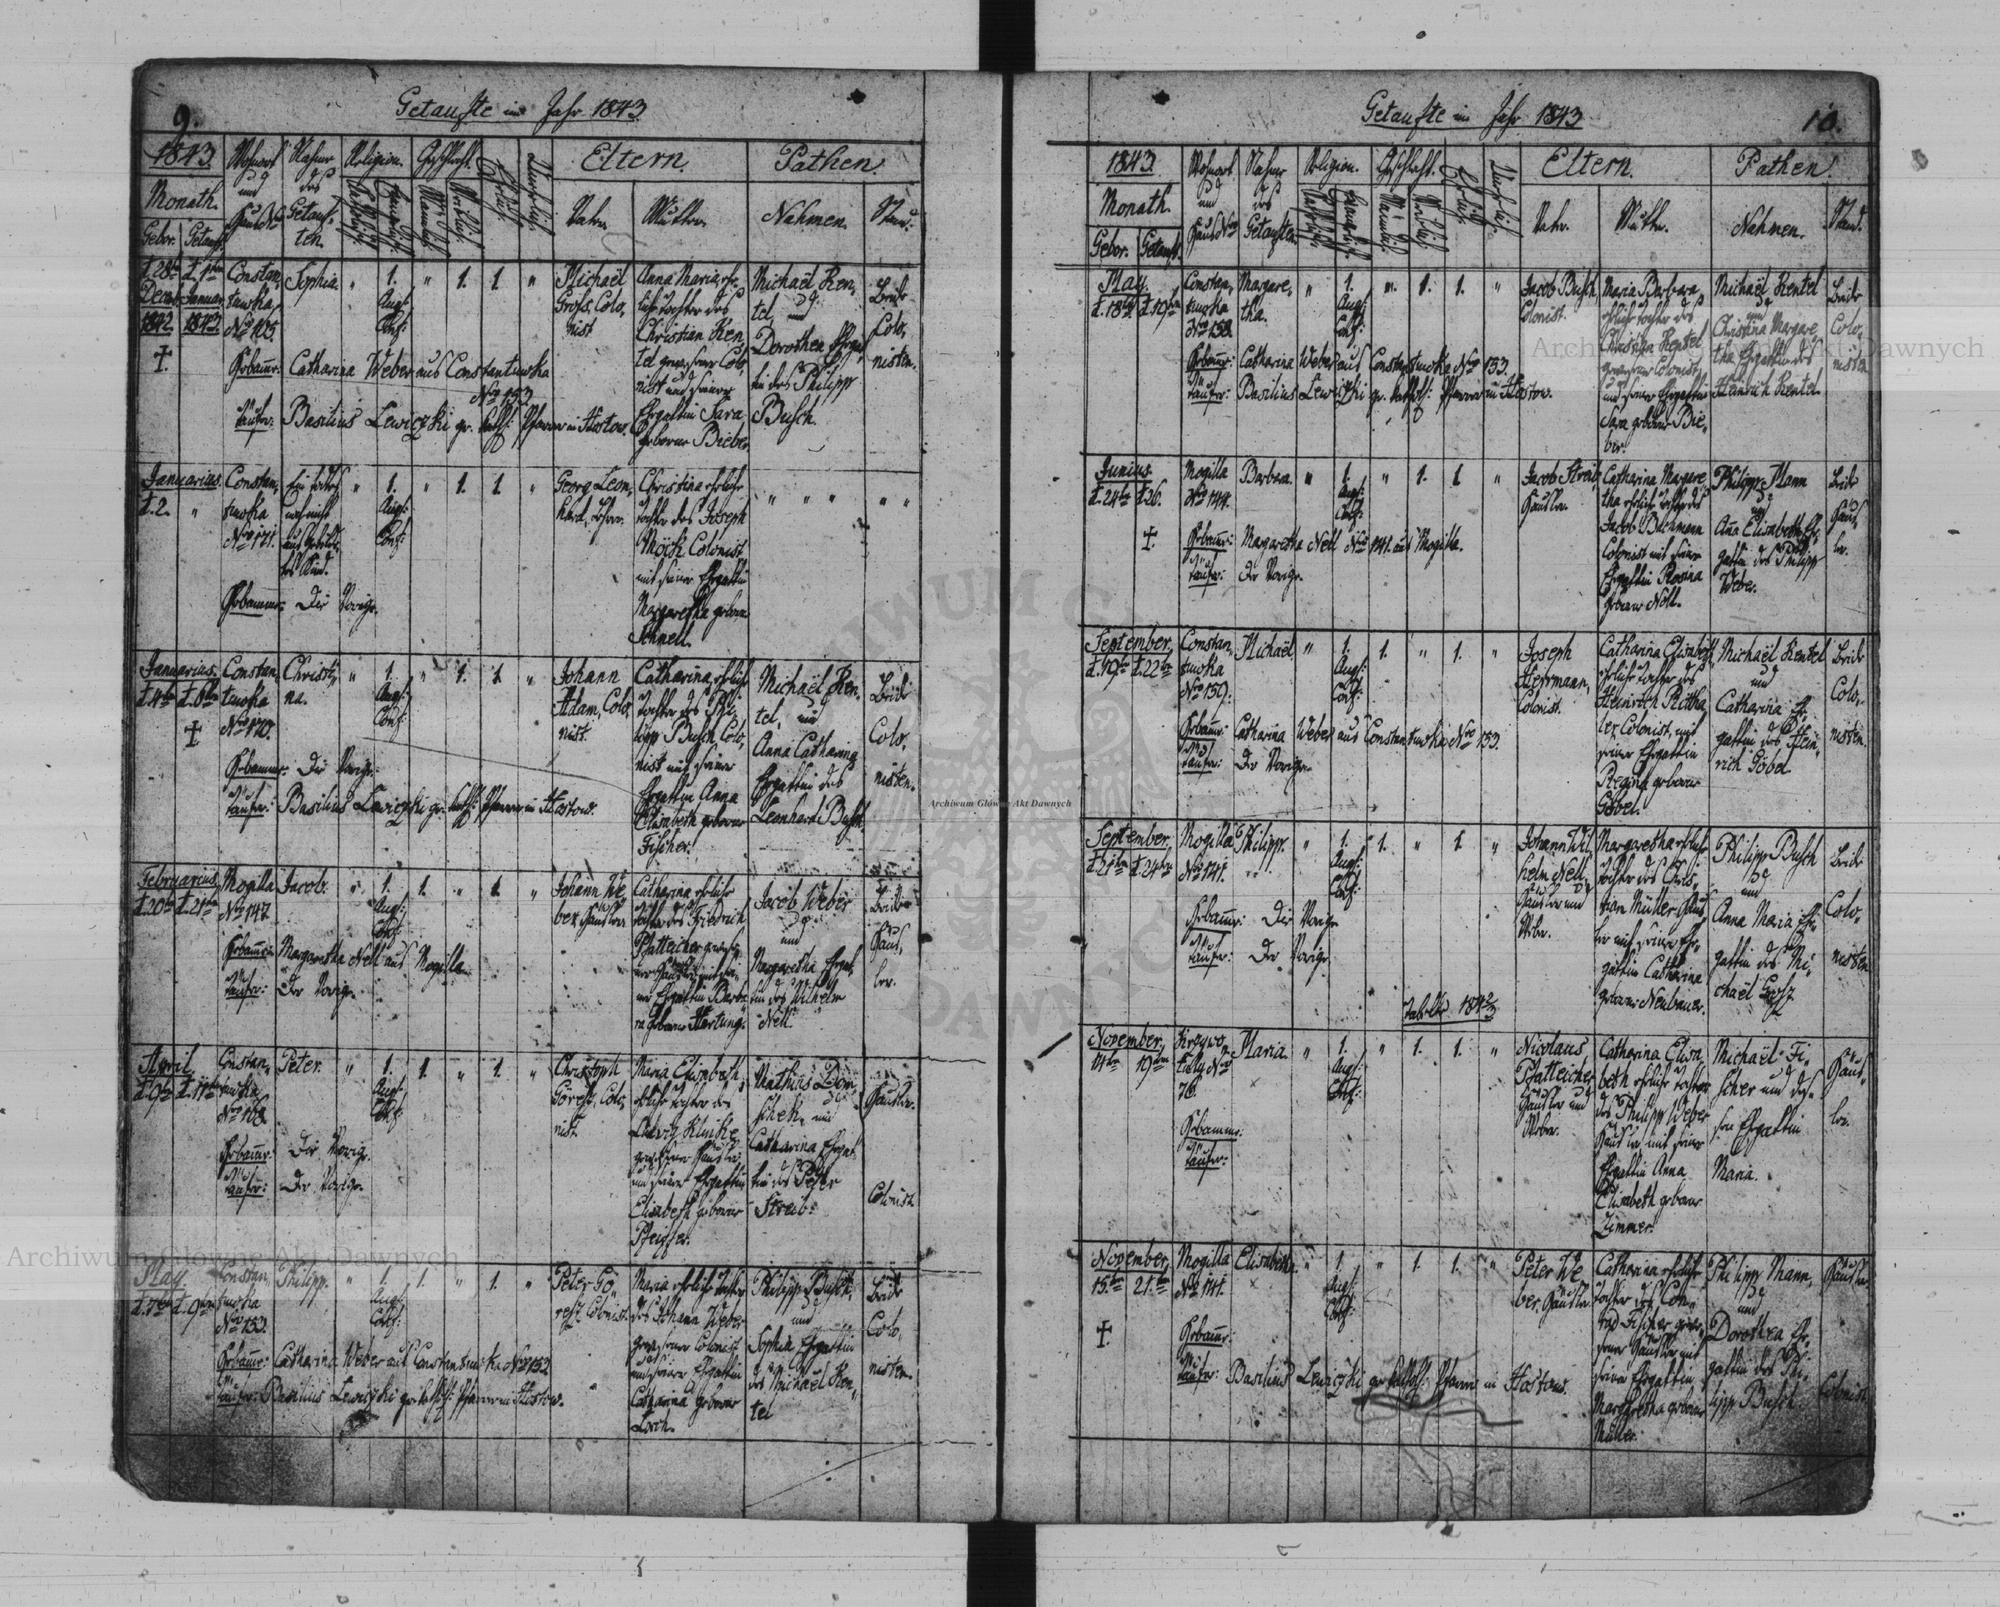 9.
Getaufte im Jahr 1843
1843.
Monath.
Gebor. Getauft.
Wohnort und Haus No
Nahme des Getauf-
ten.
Religion.
Geschlecht.
Eltern.
Vater. Mutter.
Pathen.
Nahmen. Stand.
d. 28ten Decemb. 1842
d. 1ten Januar 1843.
Constan-
tinowka
No 125.
Sophia. " 1. " 1. 1. "
Augs:
Conf:
Michaël
Gross, Colo-
nist
Anna Maria, ehe-
liche Tochter des
Christian Ren-
tel gewesener Colo-
nist und seiner
Ehegattin Sara
geborne Bieber.
Michaël Ren-
tel, und
Dorothea Ehegat-
tin des Philipp
Busch.
Beide
Colo-
nisten.
Hebamme: Catharina Weber aus Constantinowka
No 153
Täufer: Basilius Lewiczki gr. kathol: Pfarrer in Hostow.
Januarius.
d. 2. "
Constan-
tinowka
No 171.
" 1. " 1. 1. "
Augs:
Conf:
Georg Leon-
hard,
Christina eheliche
Tochter des Joseph
Möck Colonist
mit seiner Ehegattin
Margaretha geborne
Schnell.
" " " " "
Hebamme: Die Vorige.
Januarius.
d. 4ten d. 6ten
Constan-
tinowka
No 170.
Christi-
na. " 1. " 1. 1. "
Augs:
Conf:
Johann
Adam, Colo-
nist.
Catharina, eheliche
Tochter des Phi-
lipp Busch Colo-
nist mit seiner
Ehegattin Anna
Elisabeth geborne
Fischer.
Michaël Ren-
tel, und
Anna Catharina
Ehegattin des
Leonhard Busch.
Beide
Colo-
nisten.
Hebamme: Die Vorige.
Täufer: Basilius Lewiczki gr. kathol: Pfarrer in Hostow.
Februarius.
d. 20ten d. 21ten
Mogilla
No 147
Jacob. " 1. 1. " 1. "
Augs:
Conf:
Johann We-
ber, Häusler
Catharina eheliche
Tochter des Friedrich
Pfatteicher gewese-
ner Häusler mit sei-
ner Ehegattin Barba-
ra geborne Hartung.
Jacob Weber
und
Margaretha Ehegat-
tin des Wilhelm
Nell.
Beide
Häus-
ler.
Hebamme: Margaretha Nell aus Mogilla.
Täufer: Der Vorige.
April.
d. 9ten d. 11ten
Constan-
tinowka
No 168.
Peter. " 1. 1. " 1. "
Augs:
Conf:
Christoph
Göres, Colo-
nist.
Maria Elisabeth
eheliche Tochter des
Ludwig Klinke
gewesener Häusler
und seiner Ehegattin
Elisabeth geborne
Pfeiffer.
Mathias Dom-
schek, und
Catharina Ehegat-
tin des Peter
Streib.
Häusler.
Colonist.
Hebamme: Die Vorige.
Täufer: Der Vorige.
May.
d. 7ten d. 9ten
Constan-
tinowka
No 153.
Philipp. " 1. 1. " 1. "
Augs:
Conf:
Peter Gö-
res, Colonist.
Maria eheliche Tochter
des Johann Weber
gewesener Colonist
und seiner Ehegattin
Catharina geborne
Lorch.
Philipp Busch,
und
Sophia Ehegattin
des Michaël Ren-
tel
Beide
Colo-
nisten.
Hebamme: Catharina Weber aus Constantinowka No 153
Täufer: Basilius Lewiczki gr. kathol: Pfarrer in Hostow.
Getaufte im Jahr 1843
10.
1843
Monath.
Gebor. Getauft.
Wohnort und Haus No
Nahme des Getauften.
Religion.
Geschlecht.
Eltern.
Vater. Mutter.
Pathen.
Nahmen. Stand.
May.
d. 18ten d. 19ten
Constan-
tinowka
No 158.
Margare-
tha. " 1. " 1. 1. "
Augs:
Conf:
Jacob Busch
Colonist.
Maria Barbara
eheliche Tochter des
Christian Rentel
gewesener Colonist,
und seiner Ehegattin
Sara geborne Bie-
ber.
Michaël Rentel
und
Christina Margare-
tha Ehegattin des
Heinrich Rentel.
Beide
Colo-
nisten
Hebamme: Catharina Weber aus Constantinowka No 153.
Täufer: Basilius Lewiczki gr. kathol: Pfarrer in Hostow.
Junius.
d. 24ten d. 26.
Mogilla
No 144.
Barbara. " 1. " 1. 1. "
Augs:
Conf:
Jacob Streib,
Häusler.
Catharina Margare-
tha eheliche Tochter des
Jacob Bachmann
Colonist mit seiner
Ehegattin Rosina
geborne Noll.
Philipp Mann
und
Anna Elisabeth Ehe-
gattin des Philipp
Weber.
Beide
Häus-
ler.
Hebamme: Margaretha Nell No 141 aus Mogilla.
Täufer: Der Vorige.
September.
d. 19ten d. 22ten
Constan-
tinowka
No 159.
Michaël. " 1. 1. " 1. "
Augs:
Conf:
Joseph
Herrmann,
Colonist.
Catharina Elisabeth
eheliche Tochter des
Heinrich Röttha-
ler Colonist, mit
seiner Ehegattin
Regina geborne
Göbel.
Michaël Rentel
und
Catharina Ehe-
gattin des Hein-
rich Göbel
Beide
Colo-
nisten.
Hebamme: Catharina Weber aus Constantinowka No 153.
Täufer: Der Vorige.
September.
d. 21ten d. 24ten
Mogilla
No 141.
Philipp. " 1. 1. " 1. "
Augs:
Conf:
Johann Wil-
helm Nell,
Häusler und
Weber.
Margaretha eheliche
Tochter des Chris-
tian Müller Häus-
ler mit seiner Ehe-
gattin Catharina
geborne Neubauer.
Philipp Busch
und
Anna Maria Ehe-
gattin des Mi-
chaël Gross
Beide
Colo-
nisten
Hebamme: Die Vorige
Täufer: Der Vorige.
Tabelle 1842/3
November.
14ten 19ten
No
76.
Maria. " 1. " 1. 1. "
Augs:
Conf:
Nicolaus
Pfatteicher
Häusler und
Weber.
Catharina Elisa-
beth eheliche Tochter
des Philipp Weber
Häusler mit seiner
Ehegattin Anna
Elisabeth geborne
Zimmer.
Michaël Fi-
scher und des-
sen Ehegattin
Maria.
Häus-
ler.
Hebamme:
Täufer:
November.
15ten 21ten
Mogilla
No 141.
Elisabetha. " 1. " 1. 1. "
Augs:
Conf:
Peter We-
ber, Häusler
Catharina eheliche
Tochter des Con-
rad Fischer gewe-
sener Häusler mit
seiner Ehegattin
Margaretha geborne
Müller.
Philipp Mann,
und
Dorothea Ehe-
gattin des Phi-
lipp Busch
Häusler
Colonist.
Hebamme:
Täufer: Basilius Lewiczki gr. kathol: Pfarrer in Hostow.
Archiwum Główne Akt Dawnych
Archiwum Główne Akt Dawnych
Archiwum Główne Akt Dawnych